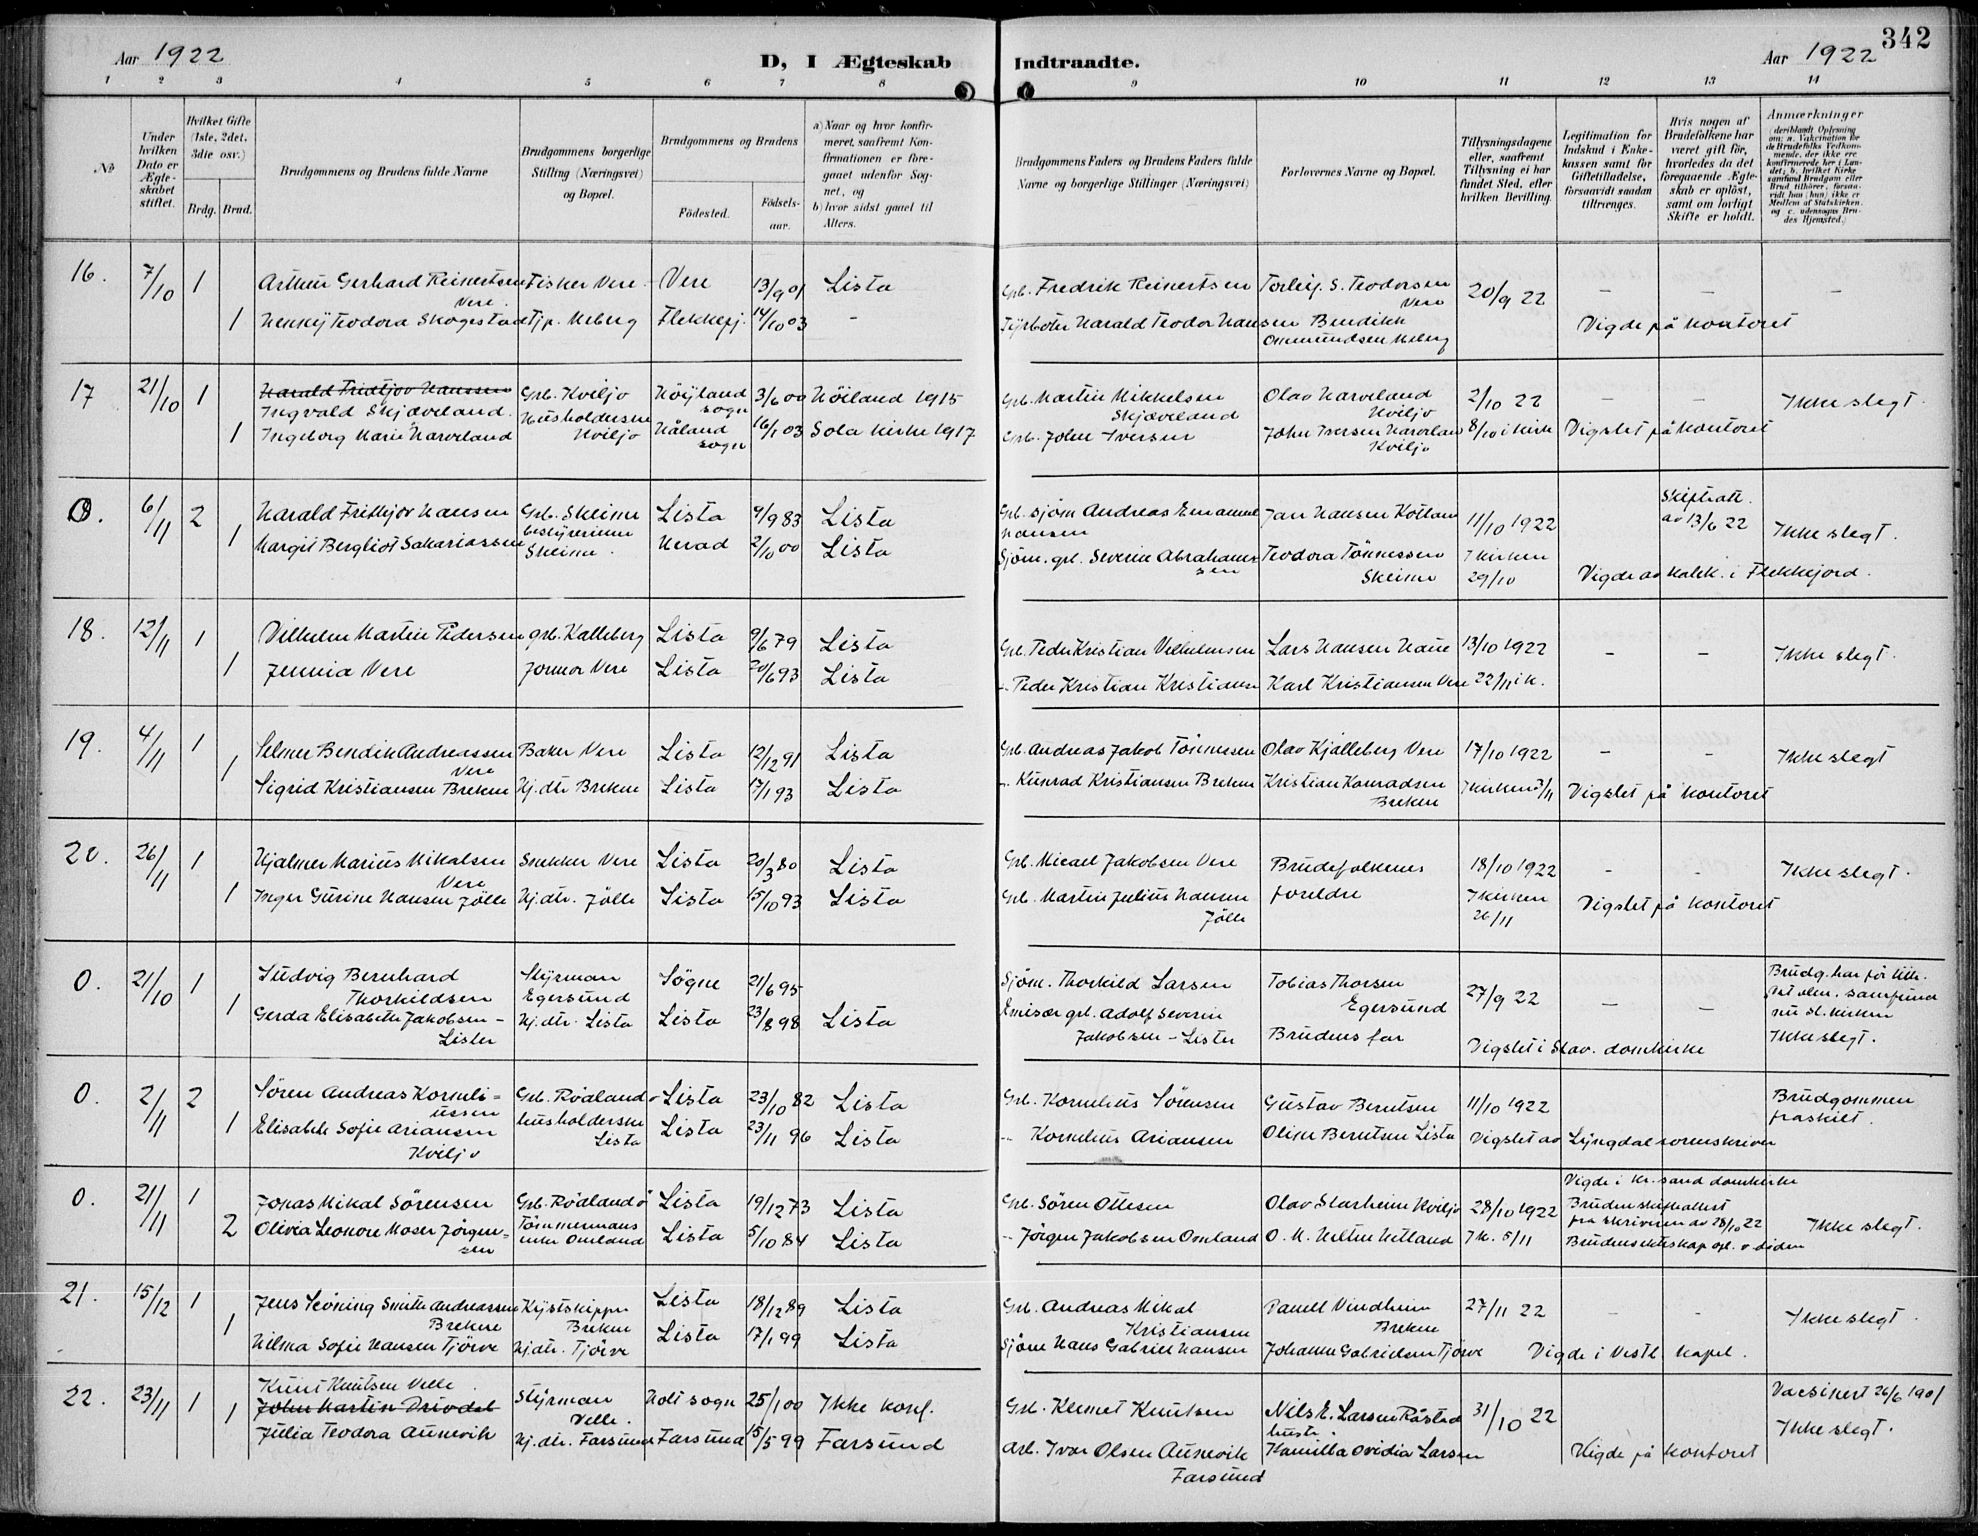 342
Aar 1922
D, I Ægteskab Indtraadte.
Aar 1922
1 2 3 4 5 6 7 8 9 10 11 12 13 14
No
Under hvilken Dato er Ægteskabet stiftet.
Hvilket Gifte (1ste, 2det, 3die osv.)
Brdg. Brud.
Brudgommens og Brudens fulde Navne
Brudgommens borgerlige Stilling (Næringsvei) og Bopæl.
Brudgommens og Brudens
Fødested.
Fødselsaar.
a) Naar og hvor konfirmeret, saafremt Konfirmationen er foregaaet udenfor Sognet, og
b) hvor sidst gaaet til Alters.
Brudgommens Faders og Brudens Faders fulde Navne og borgerlige Stillinger (Næringsvei)
Forlovernes Navne og Bopæl.
Tillysningsdagene eller, saafremt Tillysning ei har fundet Sted, efter hvilken Bevilling.
Legitimation for Indskud i Enkekassen samt for Giftetilladelse, forsaavidt saadan tiltrænges.
Hvis nogen af Brudefolkene har været gift før, hvorledes da det foregaaende Ægteskab er opløst, samt om lovligt Skifte er holdt.
Anmærkninger
(deriblandt Oplysning om: a. Vakcination for de Brudefolks Vedkommende, der ikke ere konfirmerede her i Landet; b. hvilket Kirkesamfund Brudgom eller Brud tilhører, forsaavidt han (hun) ikke er Medlem af Statskirken, og c. udensogns Brudes Hjemsted.)
16. 7/10 1 Arthur Gerhard Reinertsen Fisker Vere Vere 13/9 01 Lista Grb. Fredrik Reinertsen Torleif S. Teodorsen 20/9 22 – – –
Vere. Vere
1 Hekky Teodora Skogestad Tjp. Meberg Flekkefj. 14/10 03 – Fyrbøter Harald Teodor Hansen Bendikk Vigde på kontoret
Ommundsen Meberg
17 21/10 1 Harald Fridtjov Hanssen Grb. Kviljo Høyland 3/6 00 Høiland 1915 Grb. Martin Mikkelsen Olav Harveland 2/10 22 – – Ikke slegt.
Ingvald Skjæveland. sogn Skjæveland Kviljo
1 Ingeborg Marie Harveland Husholderske Kviljo Håland sogn 16/1 03 Sola kirke 1917 Grb. John Iversen John Iversen Harveland 8/10 i kirk Vigslet på kontoret
Kviljo
0. 6/11 2 Harald Fritkjov Hansen Grb. Skeime Lista 9/9 83 Lista Grb. sjøm Andreas Emanuel Jan Hansen Kotland 11/10 1922 Skiftratt. Ikke slegt.
Hansen av 13/6 22
1 Margit Bergliot Sakariassen bestyrerinne Herad 2/10 00 Lista Sjøm. grb. Severin Abrahamssen Teodora Tønnessen I kirken
Skeime. Skeime 29/10 Vigde av kalek. i Flekkefjord.
18. 12/11 1 Vilhelm Martin Pedersen grb. Kalleberg Lista 9/6 79 Lista Grb. Peder Kristian Vilhelmsen Lars Hansen Haue 13/10 1922 – – Ikke slegt.
1 Jennia Vere Jormor Vere Lista 20/6 93 Lista – Peder Kristian Kristiansen Karl Kristiansen Vere 22/11 i k.
19. 4/11 1 Selmer Bendik Andreassen Baker Vere Lista 12/12 91 Lista Grb. Andreas Jakob Tønnessen Olav Kjalleberg Vere 17/10 1922 – – Ikke slegt
Vere
1 Sigrid Kristiansen Brekne Hj.dtr Brekne Lista 17/1 93 Lista – Kunrad Kristiansen Brekne Kristian Konradsen I kirken 5/11 Vigslet på kontoret
Brekne
20. 26/11 1 Hjalmer Marius Mikalsen Snekker Vere Lista 20/3 80 Lista Grb. Micael Jakobsen Vere Brudefolkenes 18/10 1922 – – Ikke slegt.
Vere
1 Inger Gurine Hansen Jølle Hj.dtr. Jølle Lista 15/10 93 Lista Grb. Martin Julius Hansen foreldre I kirken Vigslet på kontoret
Jølle 26/11
0. 21/10 1 Ludvig Bernhard Styrman Søgne 21/6 95 Sjøm. Thorkild Larsen Tobias Thorsen 27/9 22 – – Brudg. har før tilh.
Thorkildsen Egersund Egersund samfund
1 Gerda Elisabeth Jakobsen – Hj.dtr. Lista Lista 23/8 98 Lista Emisær grb. Adolf Severin nu st. kirken
Lister Jakobsen – Lister Brudens far Vigslet i Stav. domkirke Ikke slegt.
0. 2/11 2 Søren Andreas Korneliussen Grb. Rødland Lista 23/10 82 Lista Grb. Kornelius Sørensen Gustav Berntsen 11/10 1922 Brudgommen
fraskilt.
1 Elisabeth Sofie Ariansen husholderske Lista 23/11 96 Lista – Kornelius Ariansen Oline Berntsen Lista Vigslet av Lyngdal sorenskriver
Kviljo Lista
0. 21/11 1 Jonas Mikal Sørensen Grb. Rødland Lista 19/12 73 Lista Grb. Søren Ottesen Olav Starheim Kviljo 28/10 1922 Vigde i Kr.sand domkirke
Brudens skifteattest Ikke slegt.
2 Olivia Leonore Moser Jørgensen Tømmermans enke Omland Lista 5/10 84 Lista – Jørgen Jakobsen Omland O. M. Meltin Metland I k. 5/11 fra skriveren av 28/10 22
Brudens ekteskap opl. v døden
21. 15/12 1 Jens Løvning Smith Andreassen Kystskipper Lista 18/12 89 Lista Grb. Andreas Mikal Pauell Vindheim 27/11 22 – – Ikke slegt.
Brekne Brekne Kristiansen Brekne
1 Hilma Sofie Hansen Tjørve Hj.dtr. Tjørve Lista 17/1 99 Lista Sjøm Hans Gabriell Hansen Johanne Gabrielsen Tjørve Vigde i Vestb. kapel.
22. 23/11 1 Knut Knutsen Velle. Styrman Holt sogn 25/1 00 Ikke konf. Grb. Klemet Knutsen Nils E. Larsen Råstad 31/10 22 Vacsinert 26/6 1901
John Martin Drivdal Velle. hustr. Ikke slegt.
1 Julia Teodora Aunevik Hj.dtr. Farsund Farsund 15/5 99 Farsund Arb. Ivar Olsen Aunevik Kamilla Ovidia Larsen Vigde på kontoret
Farsund